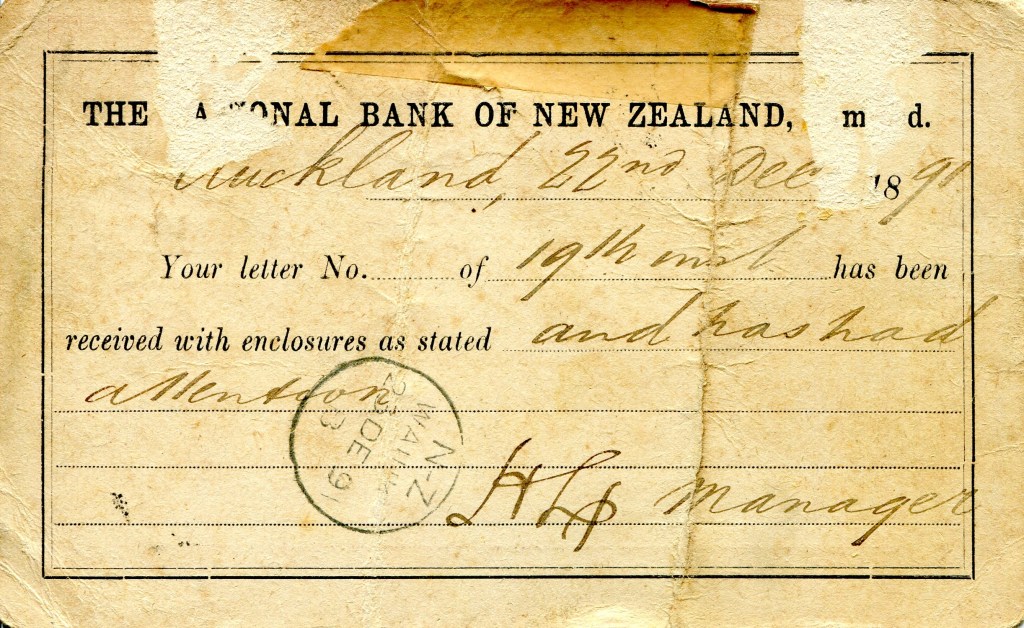 THE A IONAL BANK OF NEW ZEALAND, m d.
Auckland, 22nd Dec 1891
Your letter No. of 19th inst has been
received with enclosures as stated and has had
attention
N-Z
23 DE 91
3
Manager